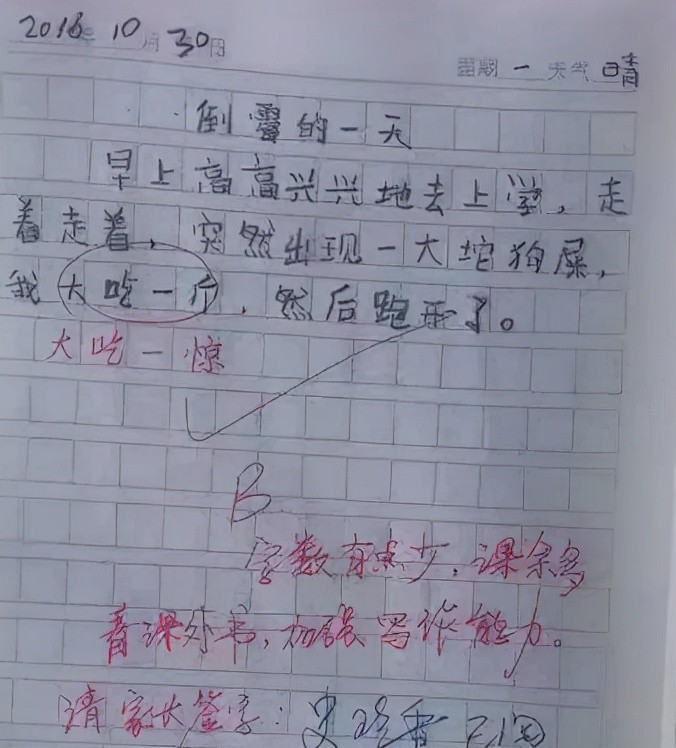 2018年10月30日
星期 一 天气 晴
倒霉的一天
早上高高兴兴地去上学,走
着走着,突然出现一大坨狗屎,
我大吃一斤,然后跑了。
大吃一惊
B
字数有点少,课余多
看课外书,加强写作能力。
请家长签字:史珍香 已阅